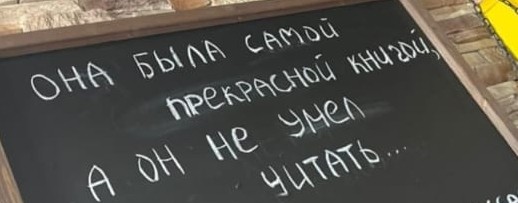 ОНА БЫЛА САМОЙ
ПРЕКРАСНОЙ КНИГОЙ,
А ОН НЕ УМЕЛ
ЧИТАТЬ...